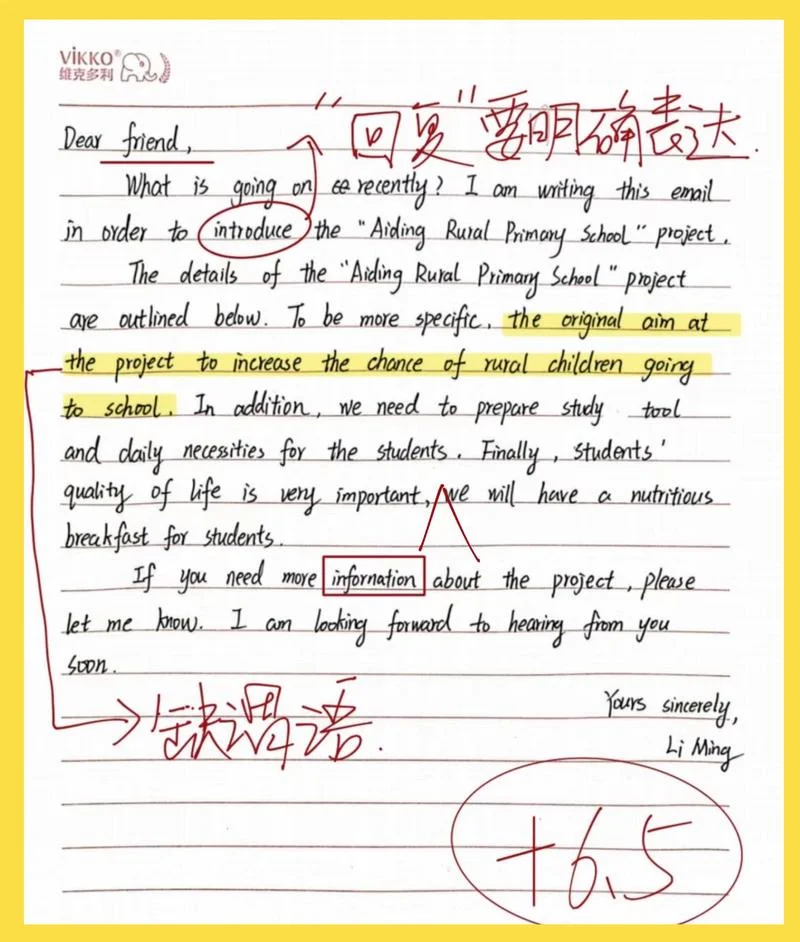 VİKKO®
维克多利
"回复"要明确表达.
Dear friend,
What is going on recently? I am writing this email
in order to introduce the "Aiding Rural Primary School" project.
The details of the "Aiding Rural Primary School" project
are outlined below. To be more specific, the original aim at
the project to increase the chance of rural children going
to school. In addition, we need to prepare study tool
and daily necessities for the students. Finally, students'
quality of life is very important, we will have a nutritious
breakfast for students.
If you need more infornation about the project, please
let me know. I am looking forward to hearing from you
soon.
缺谓语.
Yours sincerely,
Li Ming
+6.5